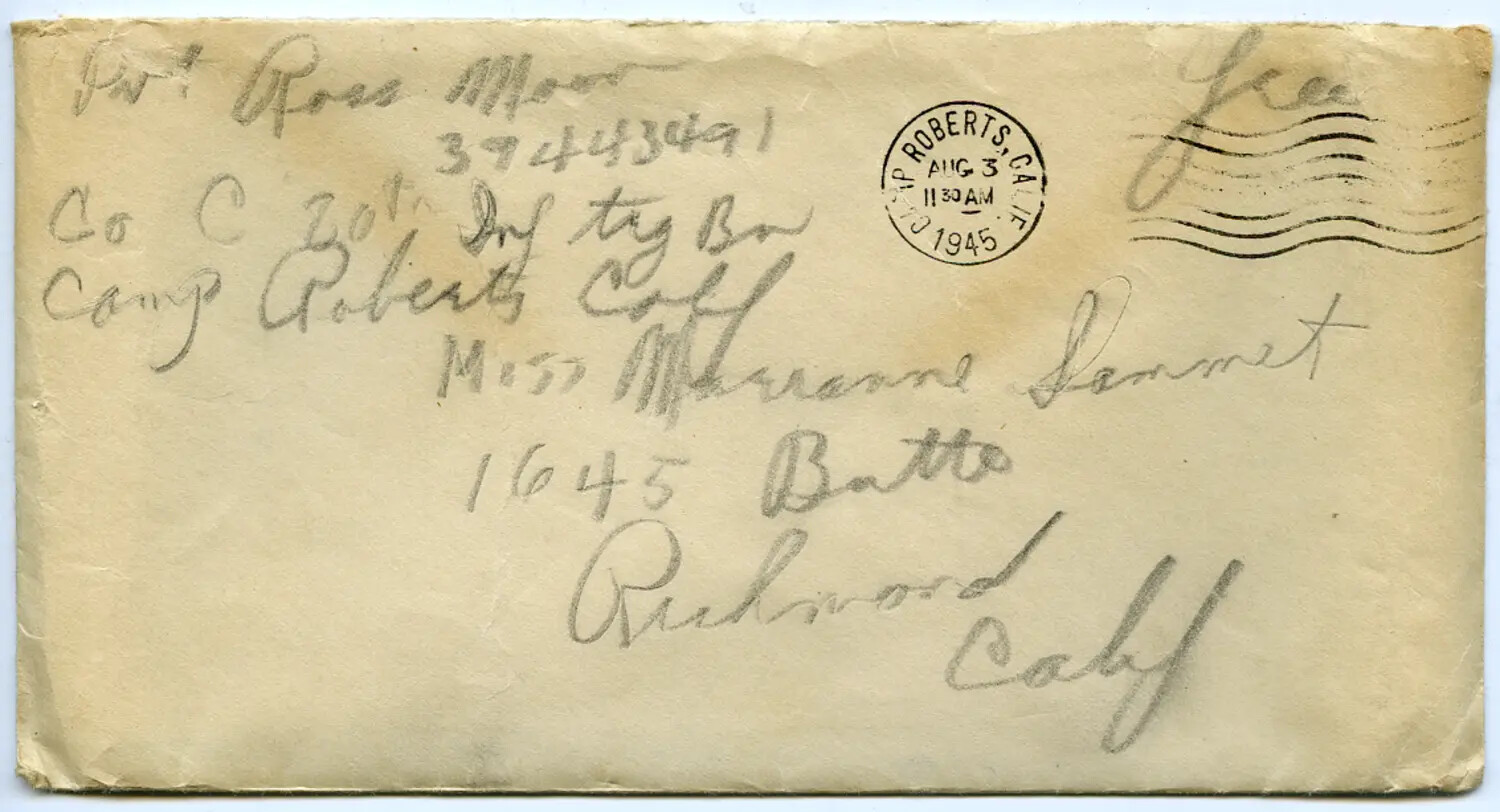 Pvt Ross Moor
39443491
Co C 20th Inf trg Bn
Camp Roberts Calif
Free
CAMP ROBERTS, CALIF.
AUG 3
11 30 AM
1945
Miss Marianne Sammet
1645 Butte
Richmond
Calif